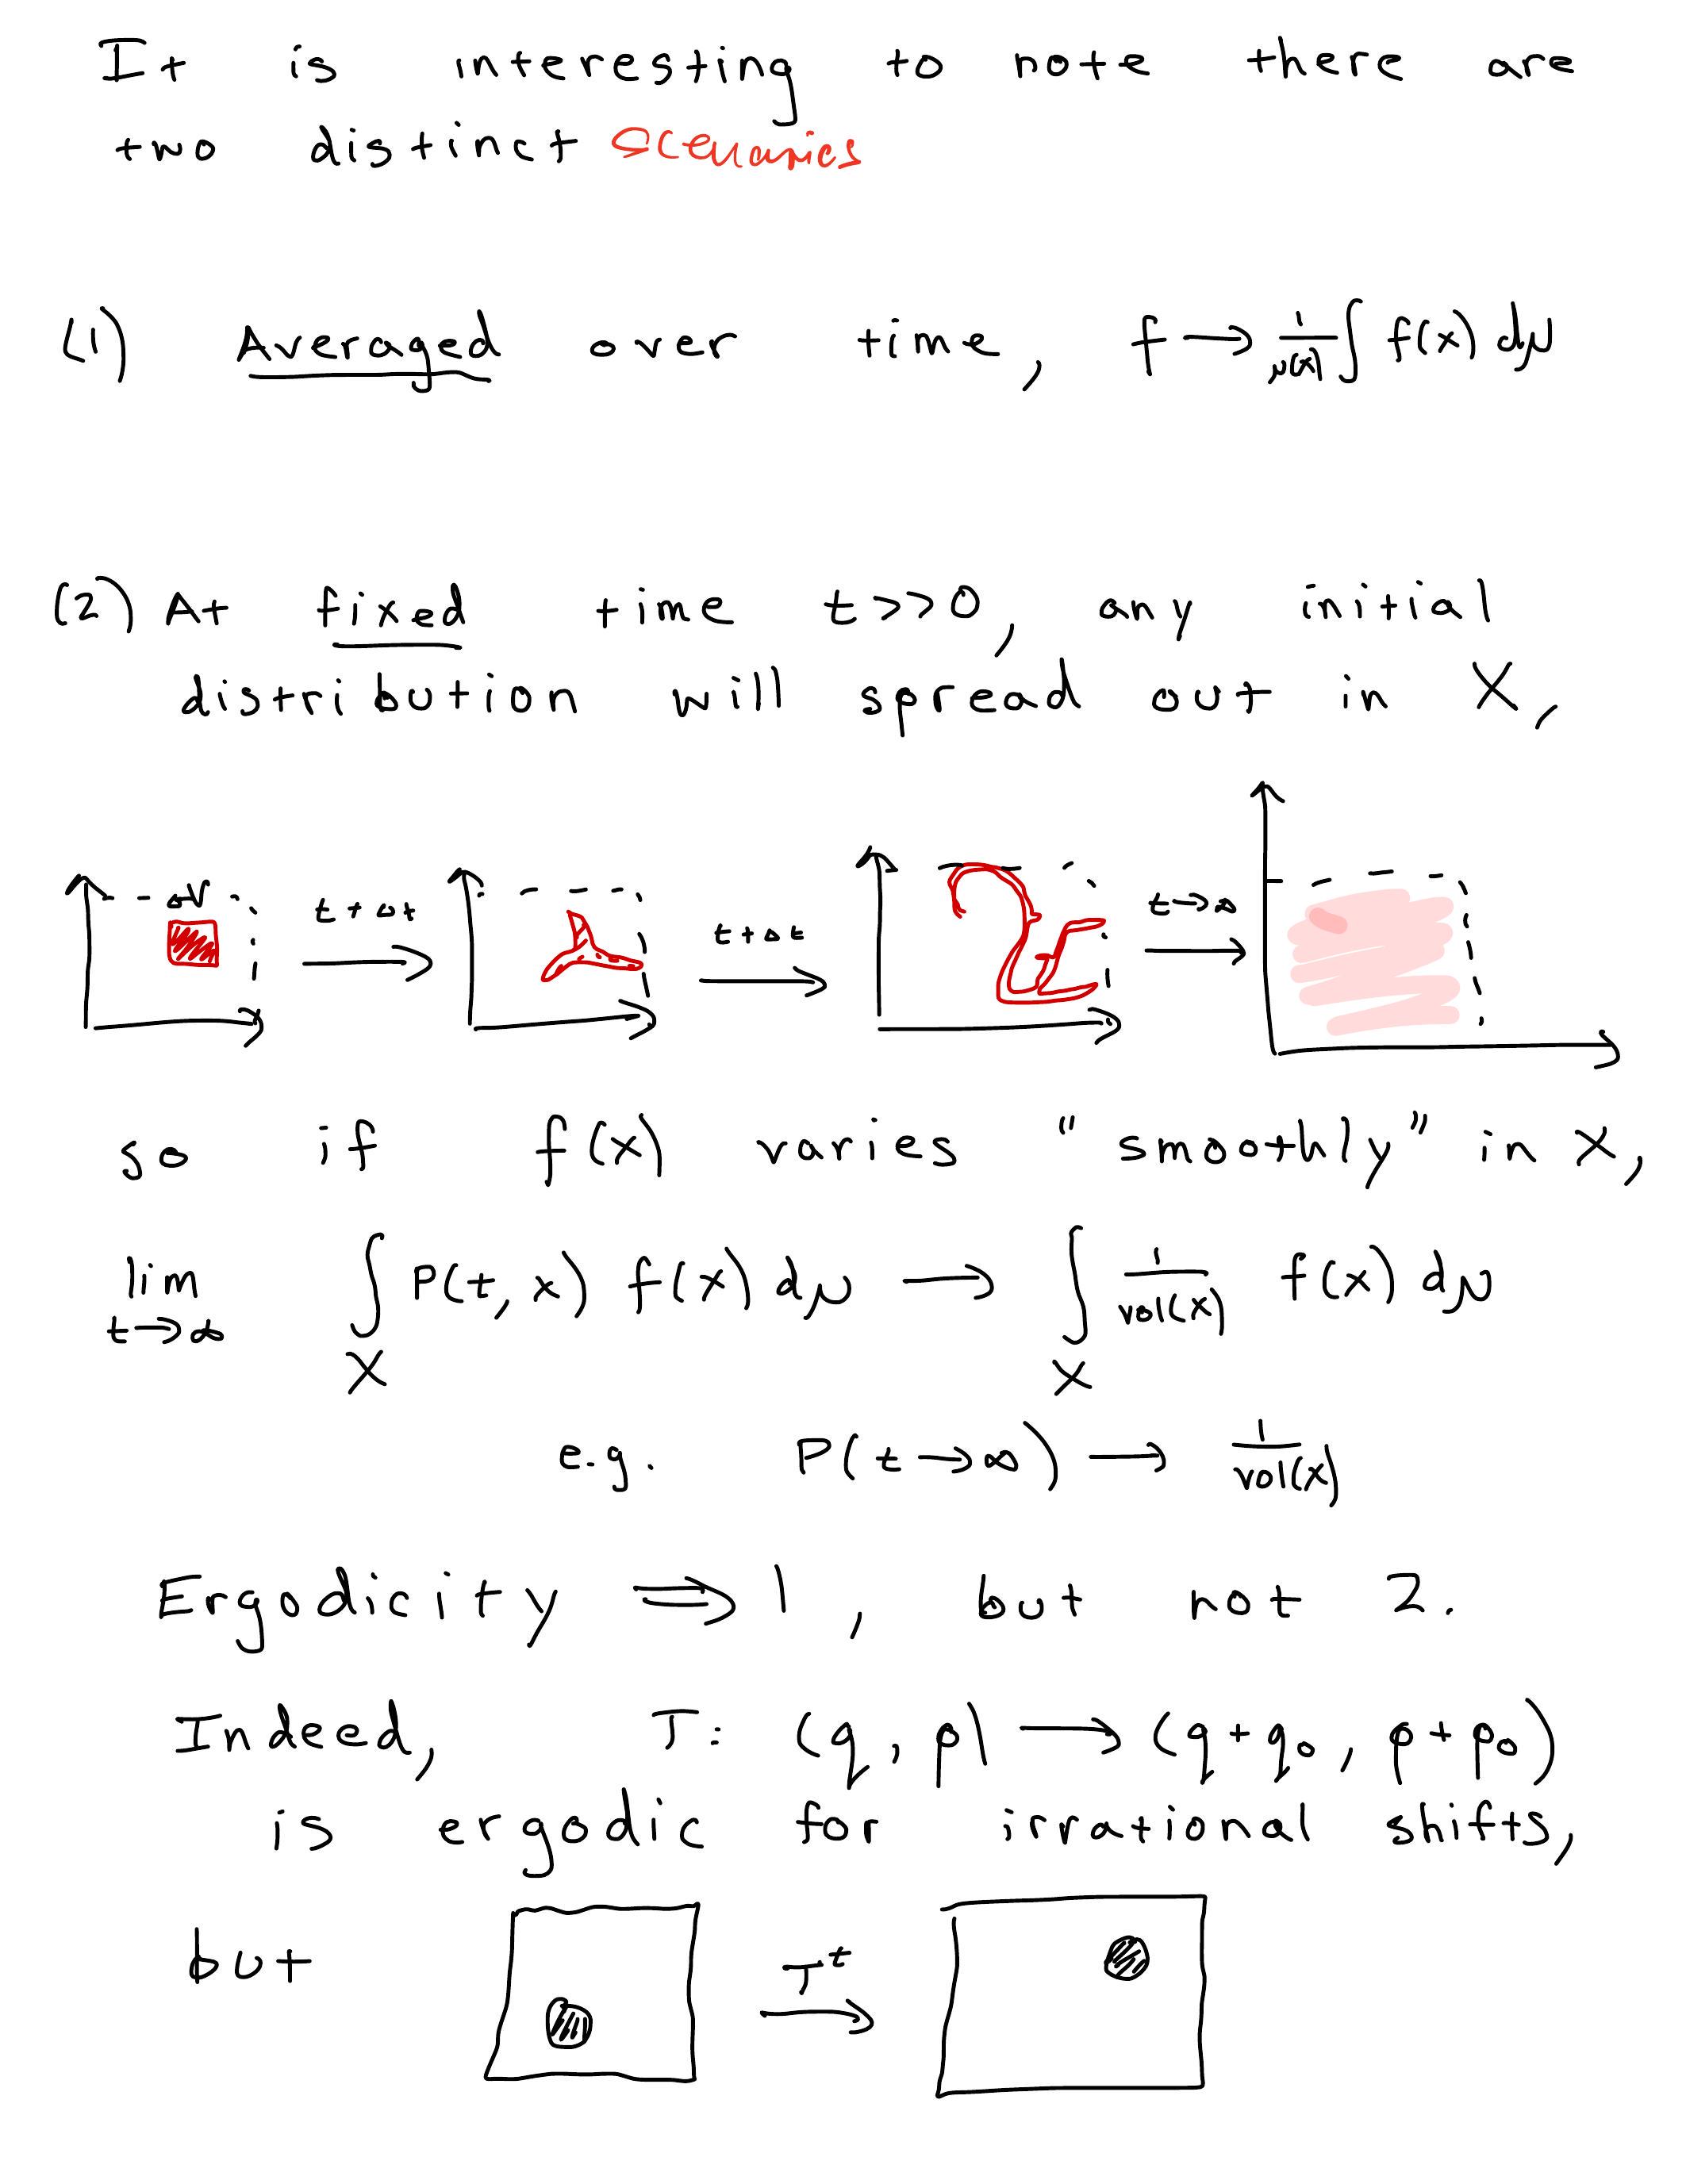 It is interesting to note there are
two distinct scenarios
(1) Averaged over time, f → 1/μ(X) ∫ f(x) dμ
(2) At fixed time t>>0, any initial
distribution will spread out in X,
ΔV t+Δt t+Δt t→∞
so if f(x) varies "smoothly" in X,
lim t→∞ ∫_X P(t, x) f(x) dμ → ∫_X 1/vol(X) f(x) dμ
e.g. P(t→∞) → 1/vol(X)
Ergodicity ⇒ 1, but not 2.
Indeed, T: (q, p) → (q+q₀, p+p₀)
is ergodic for irrational shifts,
but T^t